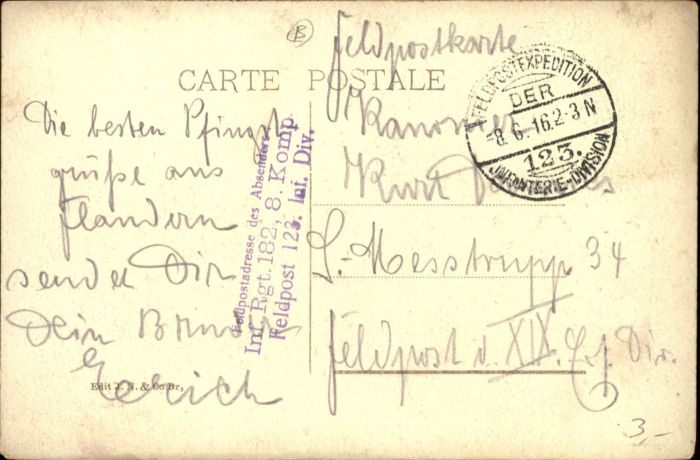 B
Feldpostkarte
CARTE POSTALE
FELDPOSTEXPEDITION
DER
8.6.16.2-3N
123.
INFANTERIE-DIVISION
Die besten Pfingst
grüße aus
Flandern
sendet Dir
Dein Bruder
Erich
Feldpostadresse des Absenders
Inf. Rgt. 182, 8. Komp.
Feldpost 123. Inf. Div.
Kanonier
Kurt
L.-Messtrupp 34
Feldpost d. XIX. Ers. Div.
Edit J. N. & Co Br.
3,-